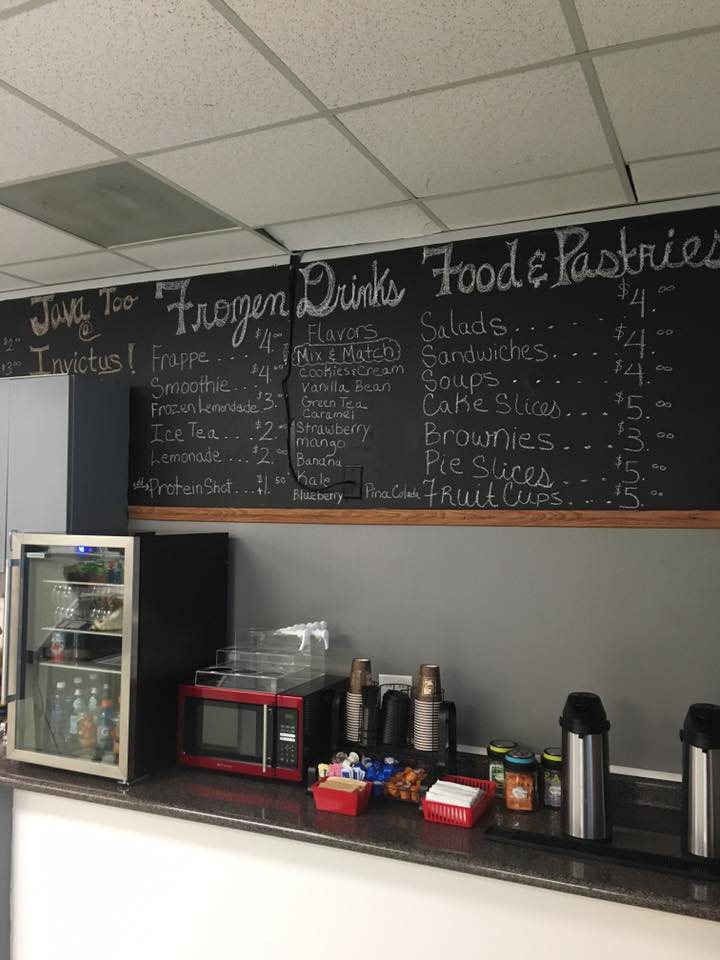 Java Too
@
Invictus!
$2.00
$3.00
Frozen Drinks
Frappe .... $4.00
Smoothie .... $4.00
Frozen Lemonade $3.
Ice Tea ... $2.
Lemonade .... $2.00
add Protein Shot ... $1.50
Flavors
Mix & Match
Cookies & Cream
Vanilla Bean
Green Tea
Caramel
Strawberry
mango
Banana
Kale
Blueberry
Pina Colada
Food & Pastries
Salads .... $4.00
Sandwiches .... $4.00
Soups ...... $4.00
Cake Slices .... $5.00
Brownies .... $3.00
Pie Slices .... $5.00
Fruit Cups .... $5.00